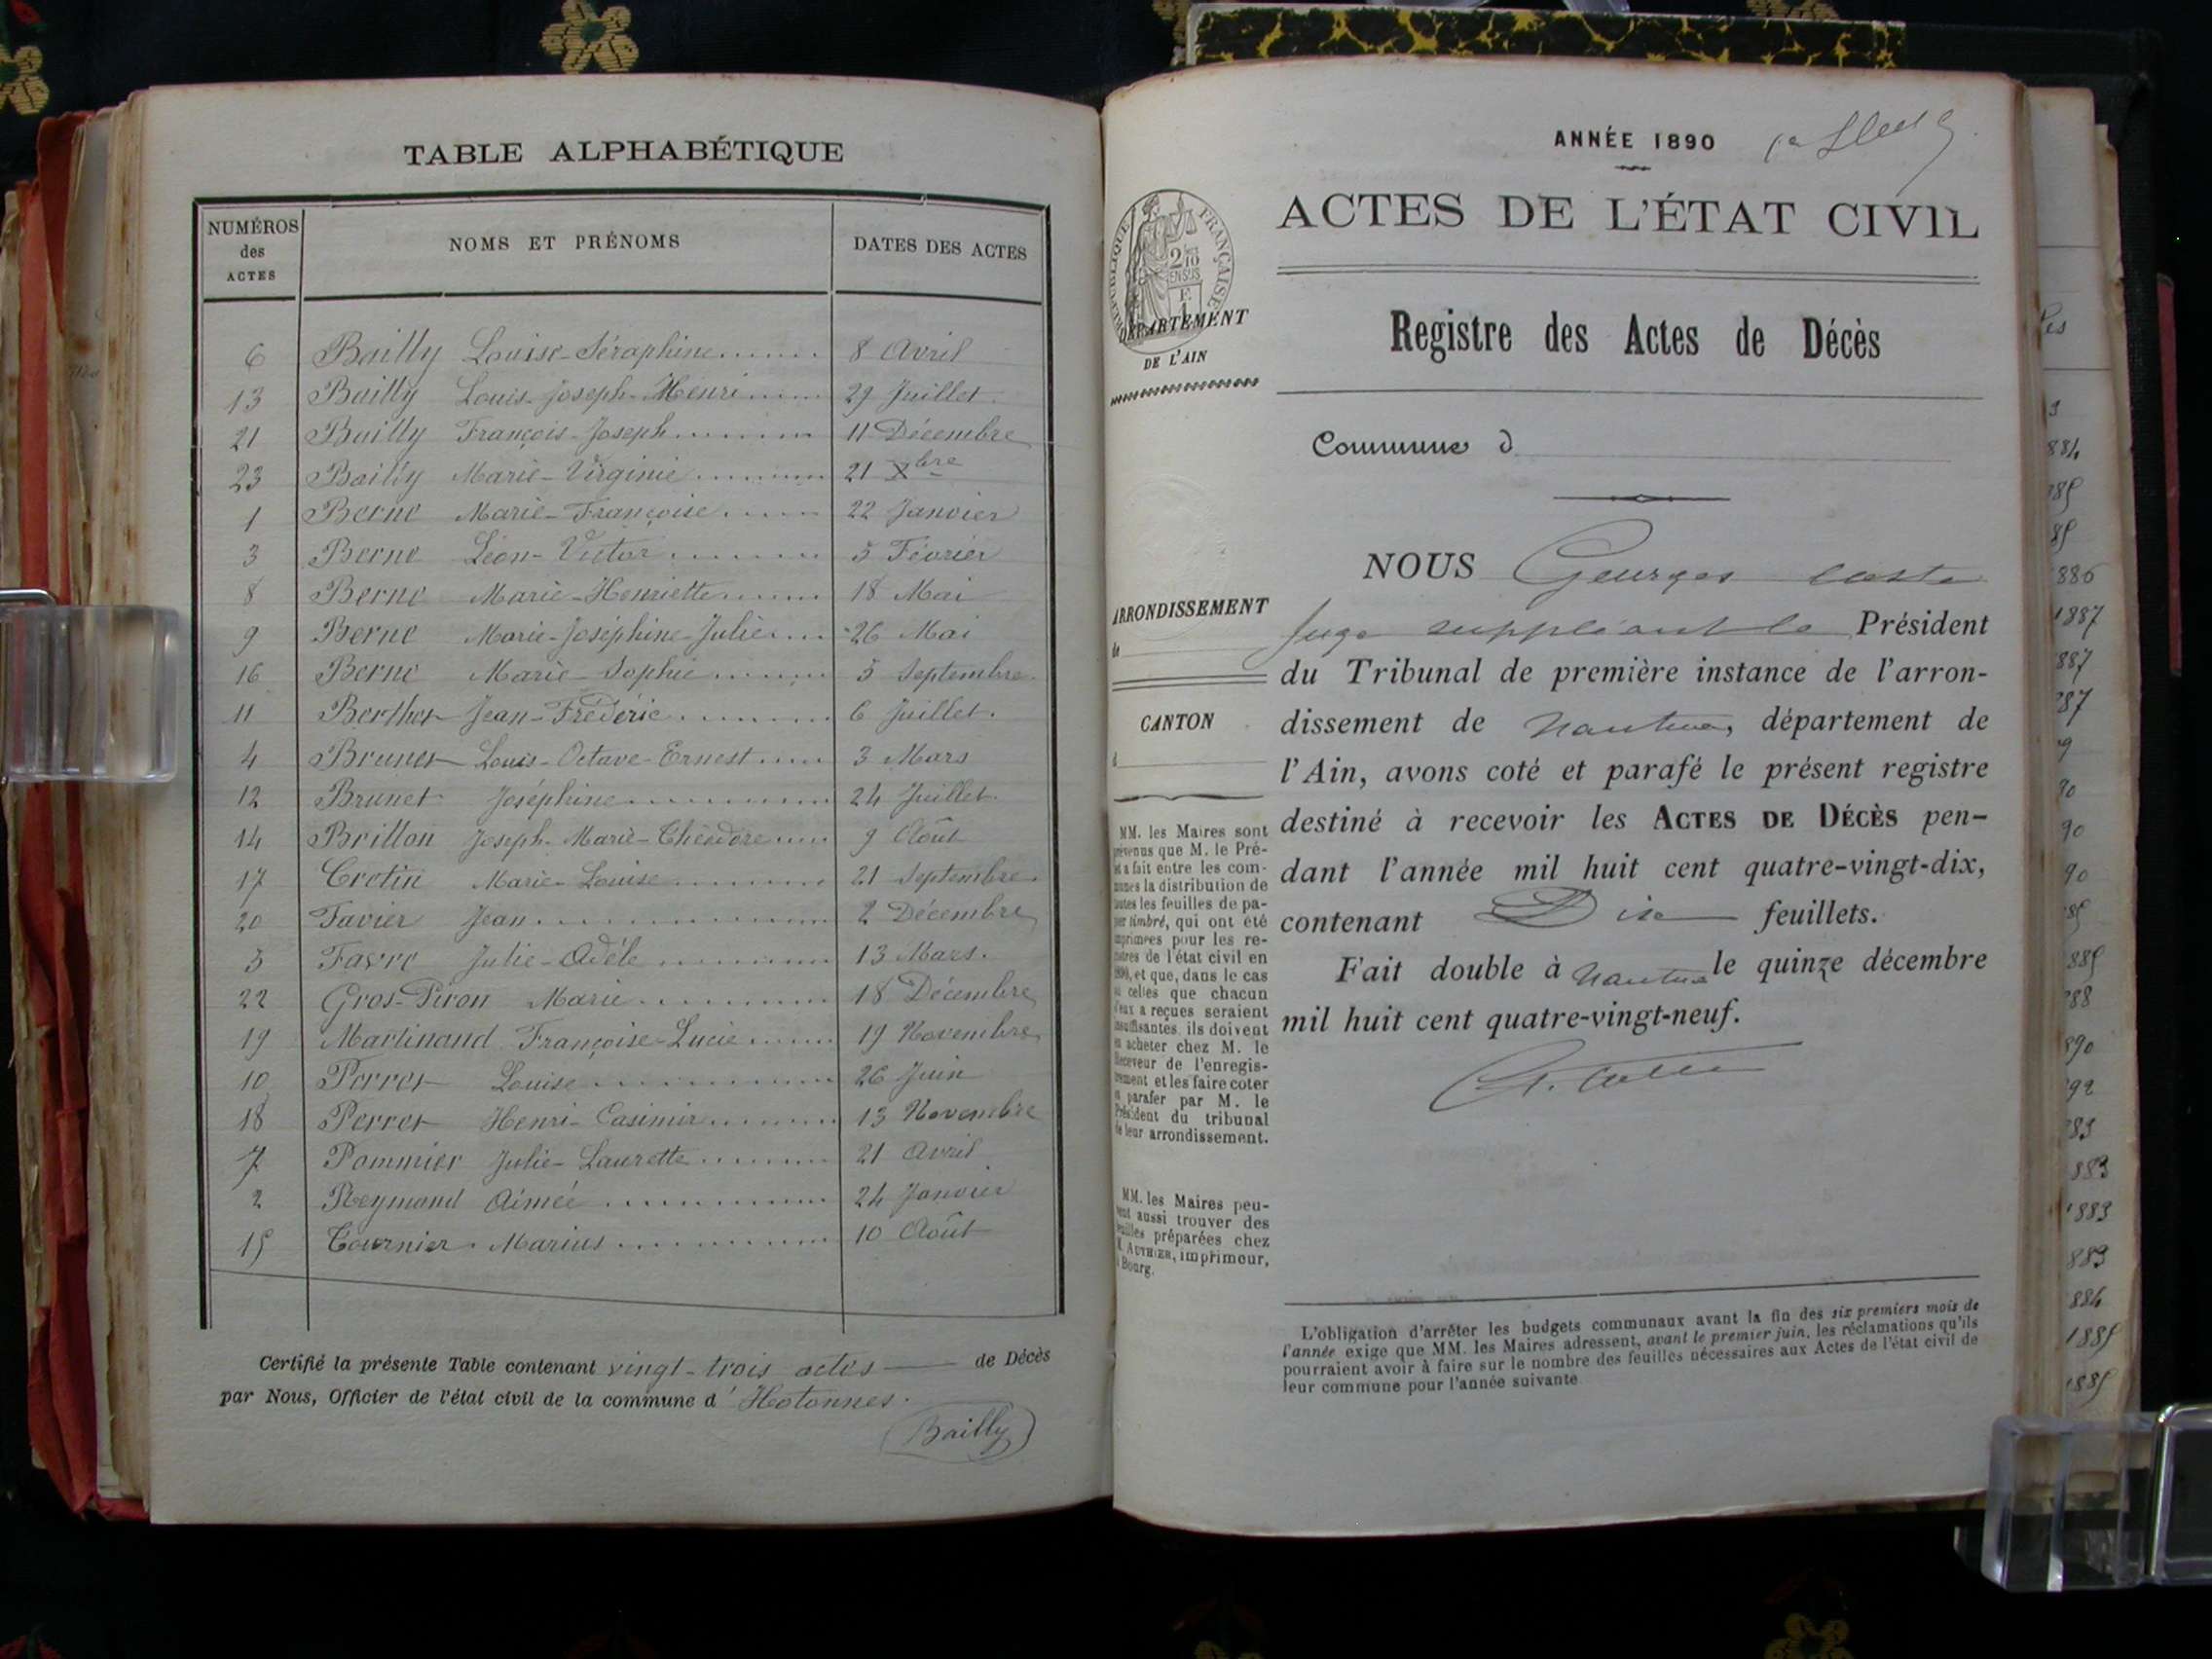 TABLE ALPHABÉTIQUE
NUMÉROS des ACTES
NOMS ET PRÉNOMS
DATES DES ACTES
6 Bailly Louise-Séraphine 8 Avril
13 Bailly Louis-Joseph-Henri 29 Juillet.
21 Bailly François-Joseph 11 Décembre
23 Bailly Marie-Virginie 21 Xbre
1 Berne Marie-Françoise 22 Janvier
3 Berne Léon-Victor 5 Février
8 Berne Marie-Henriette 18 Mai
9 Berne Marie-Joséphine-Julie 26 Mai
16 Berne Marie-Sophie 5 Septembre.
11 Berthet Jean-Frédéric 6 Juillet.
4 Brunet Louis-Octave-Ernest 3 Mars
12 Brunet Joséphine 24 Juillet.
14 Brillon Joseph-Marie-Théodore 9 Août
17 Crétin Marie-Louise 21 Septembre.
20 Favier Jean 2 Décembre
5 Favre Julie-Adèle 13 Mars.
22 Gros-Piron Marie 18 Décembre
19 Martinand Françoise-Lucie 19 Novembre
10 Perret Louise 26 Juin
18 Perret Henri-Casimir 13 Novembre
7 Pommier Julie-Laurette 21 Avril
2 Reymond Aimée 24 Janvier
15 Tournier Marius 10 Août
Certifié la présente Table contenant vingt-trois actes de Décès
par Nous, Officier de l'état civil de la commune d'Hotonnes.
Bailly
ANNÉE 1890
ACTES DE L'ÉTAT CIVIL
RÉPUBLIQUE FRANÇAISE
DÉPARTEMENT
DE L'AIN
Registre des Actes de Décès
Commune d
ARRONDISSEMENT
de
CANTON
d
NOUS Georges Coste
Juge suppléant le Président
du Tribunal de première instance de l'arron-
dissement de Nantua, département de
l'Ain, avons coté et parafé le présent registre
destiné à recevoir les ACTES DE DÉCÈS pen-
dant l'année mil huit cent quatre-vingt-dix,
contenant Dix feuillets.
Fait double à Nantua le quinze décembre
mil huit cent quatre-vingt-neuf.
G. Coste
MM. les Maires sont
prévenus que M. le Pré-
fet a fait entre les com-
munes la distribution de
toutes les feuilles de pa-
pier timbré, qui ont été
imprimées pour les re-
gistres de l'état civil en
1890, et que, dans le cas
où celles que chacun
d'eux a reçues seraient
insuffisantes, ils doivent
en acheter chez M. le
Receveur de l'enregis-
trement et les faire coter
et parafer par M. le
Président du tribunal
de leur arrondissement.
MM. les Maires peu-
vent aussi trouver des
feuilles préparées chez
M. AUTHIER, imprimeur,
à Bourg.
L'obligation d'arrêter les budgets communaux avant la fin des six premiers mois de
l'année exige que MM. les Maires adressent, avant le premier juin, les réclamations qu'ils
pourraient avoir à faire sur le nombre des feuilles nécessaires aux Actes de l'état civil de
leur commune pour l'année suivante
1887
1883
1885